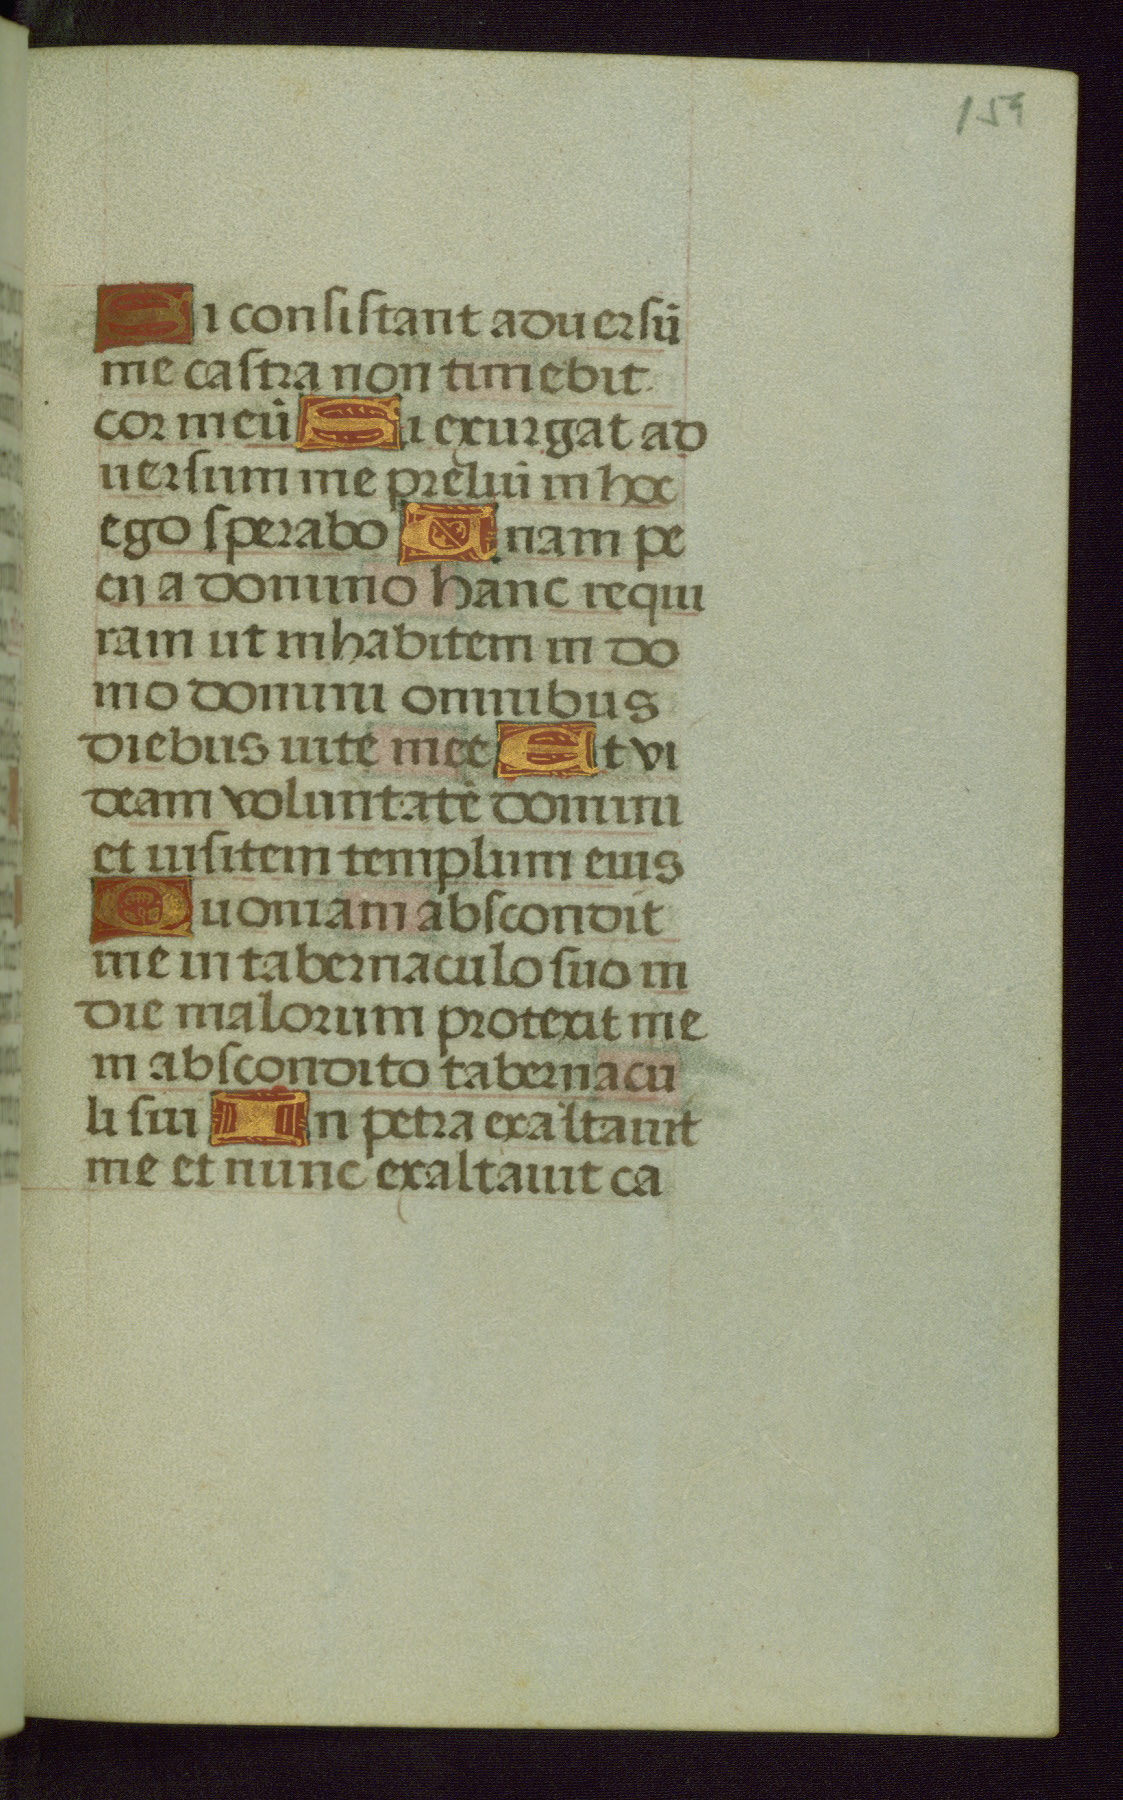 159
Si consistant aduersū
me castra non timebit
cor meū Si exurgat ad
uersum me preliuī in hoc
ego sperabo Unam pe
cii a domino hanc requi
ram ut inhabitem in do
mo domini omnibus
diebus uite mee Et vi
deam voluntatē domini
et uisitem templum eius
Quoniam abscondit
me in tabernaculo suo in
die malorum protexit me
in abscondito tabernacu
li sui In petra exaltauit
me et nunc exaltauit ca